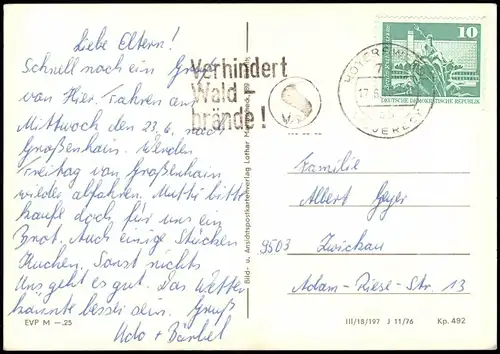 Liebe Eltern!
Schnell noch ein Gruß
von Hier. Fahren am
Mittwoch den 23.6. nach
Großenhain. Werden
Freitag von Großenhain
wieder abfahren. Mutti bitte
kaufe doch für uns ein
Brot. Auch einige Stücken
Kuchen. Sonst nichts
Uns geht es gut. Das Wetter
könnte besser sein. Gruß
Udo + Bärbel
EVP M —.25
Verhindert
Wald-
brände!
Bild- u. Ansichtspostkartenverlag Lothar
HOYERSWERDA
10
DEUTSCHE DEMOKRATISCHE REPUBLIK
Familie
Albert Geyer
9503 Zwickau
Adam-Riese-Str. 13
III/18/197 J 11/76 Kp. 492